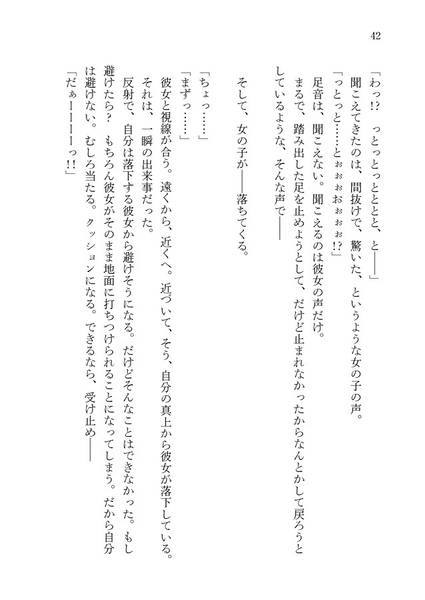 42
「わっ!?　っとっとっととと、と――」
聞こえてきたのは、間抜けで、驚いた、というような女の子の声。
「っとっと……とぉぉぉおぉぉぉ!?」
足音は、聞こえない。聞こえるのは彼女の声だけ。
まるで、踏み出した足を止めようとして、だけど止まれなかったからなんとかして戻ろうと
しているような、そんな声で――
そして、女の子が――落ちてくる。
「ちょっ……」
「まずっ……」
彼女と視線が合う。遠くから、近くへ。近づいて、そう、自分の真上から彼女が落下している。
それは、一瞬の出来事だった。
反射で、自分は落下する彼女から避けそうになる。だけどそんなことはできなかった。もし
避けたら?　もちろん彼女がそのまま地面に打ちつけられることになってしまう。だから自分
は避けない。むしろ当たる。クッションになる。できるなら、受け止め――
「だぁーーーーっ!!」